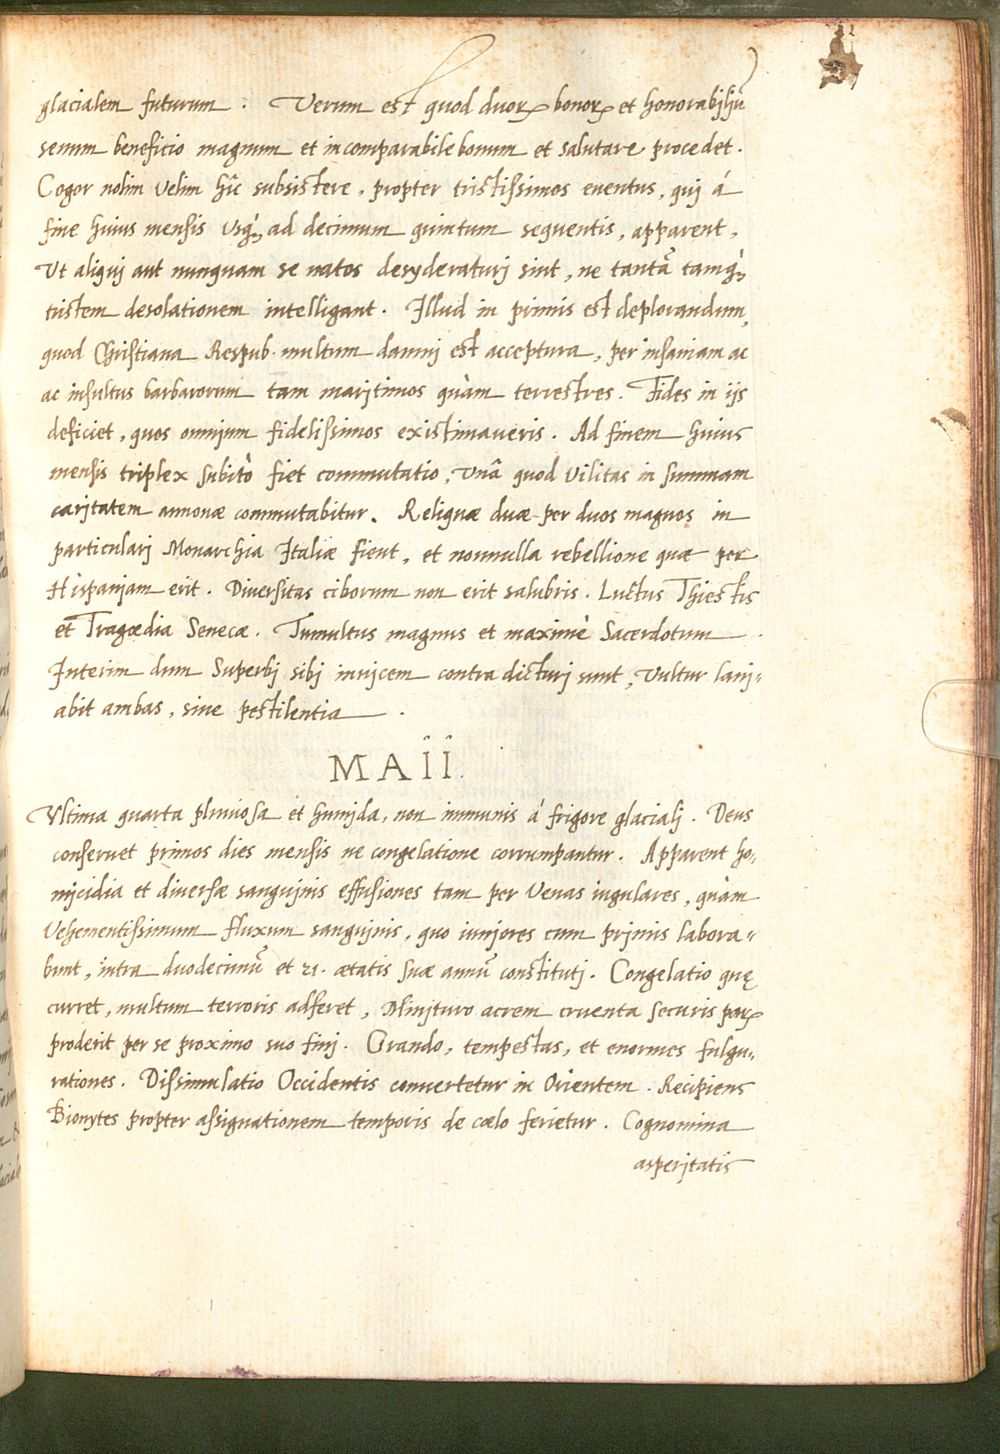 glacialem futurum . Verum est quod duoꝝ bonoꝝ et honorabiliū
senum beneficio magnum et incomparabile bonum et salutare procedet.
Cogor nolim velim hîc subsistere, propter tristissimos euentus, quj á
fine huius mensis usq̀ꝫ ad decimum quintum sequentis, apparent,
Vt aliquj aut nunquam se natos desyderaturj sint, ne tantã tamq̀ꝫ
tristem desolationem intelligant. Illud in primis est deplorandum,
quod Christiana Respub. multum damnj est acceptura, per insaniam ac
ac insultus barbarorum tam marjtimos quàm terrestres. Fides in ijs
deficiet, quos omnium fidelissimos existimaueris. Ad finem huius
mensis triplex subitò fiet commutatio, Vnã quod vilitas in summam
carjtatem annonæ commutabitur. Reliquæ duæ per duos magnos in
particularj Monarchia Italiæ fient, et nonnulla rebellione quæ per
Hispanjam erit. Diuersitas ciborum non erit salubris. Luctus Thiestis
et Tragœdia Senecæ. Tumultus magnus et maximè Sacerdotum .
Interim dum Superbj sibj inujcem contra dicturj sunt, Vultur lanj=
abit ambas, sine pestilentia .
MAII.
Vltima quarta pluuiosa et humjda, non immunis á frigore glacialj. Deus
conseruet primos dies mensis ne congelatione corrumpantur. Apparent ho=
mjcidia et diuersæ sangujnis effusiones tam per Venas iugulares, quàm
Vehementissimum fluxum sangujnis, quo iunjores cum prjmis labora=
bunt, intra duodecimũ et 21. ætatis suæ annũ constitutj. Congelatio quę
curret, multum terroris adferet, Minjturo acrem cruenta securis paꝝ
proderit per se proximo suo finj. Grando, tempestas, et enormes fulgu=
rationes. Dissimulatio Occidentis conuertetur in Orientem. Recipiens
Bionytes propter assignationem temporis de cœlo ferietur. Cognomina
asperjtatis